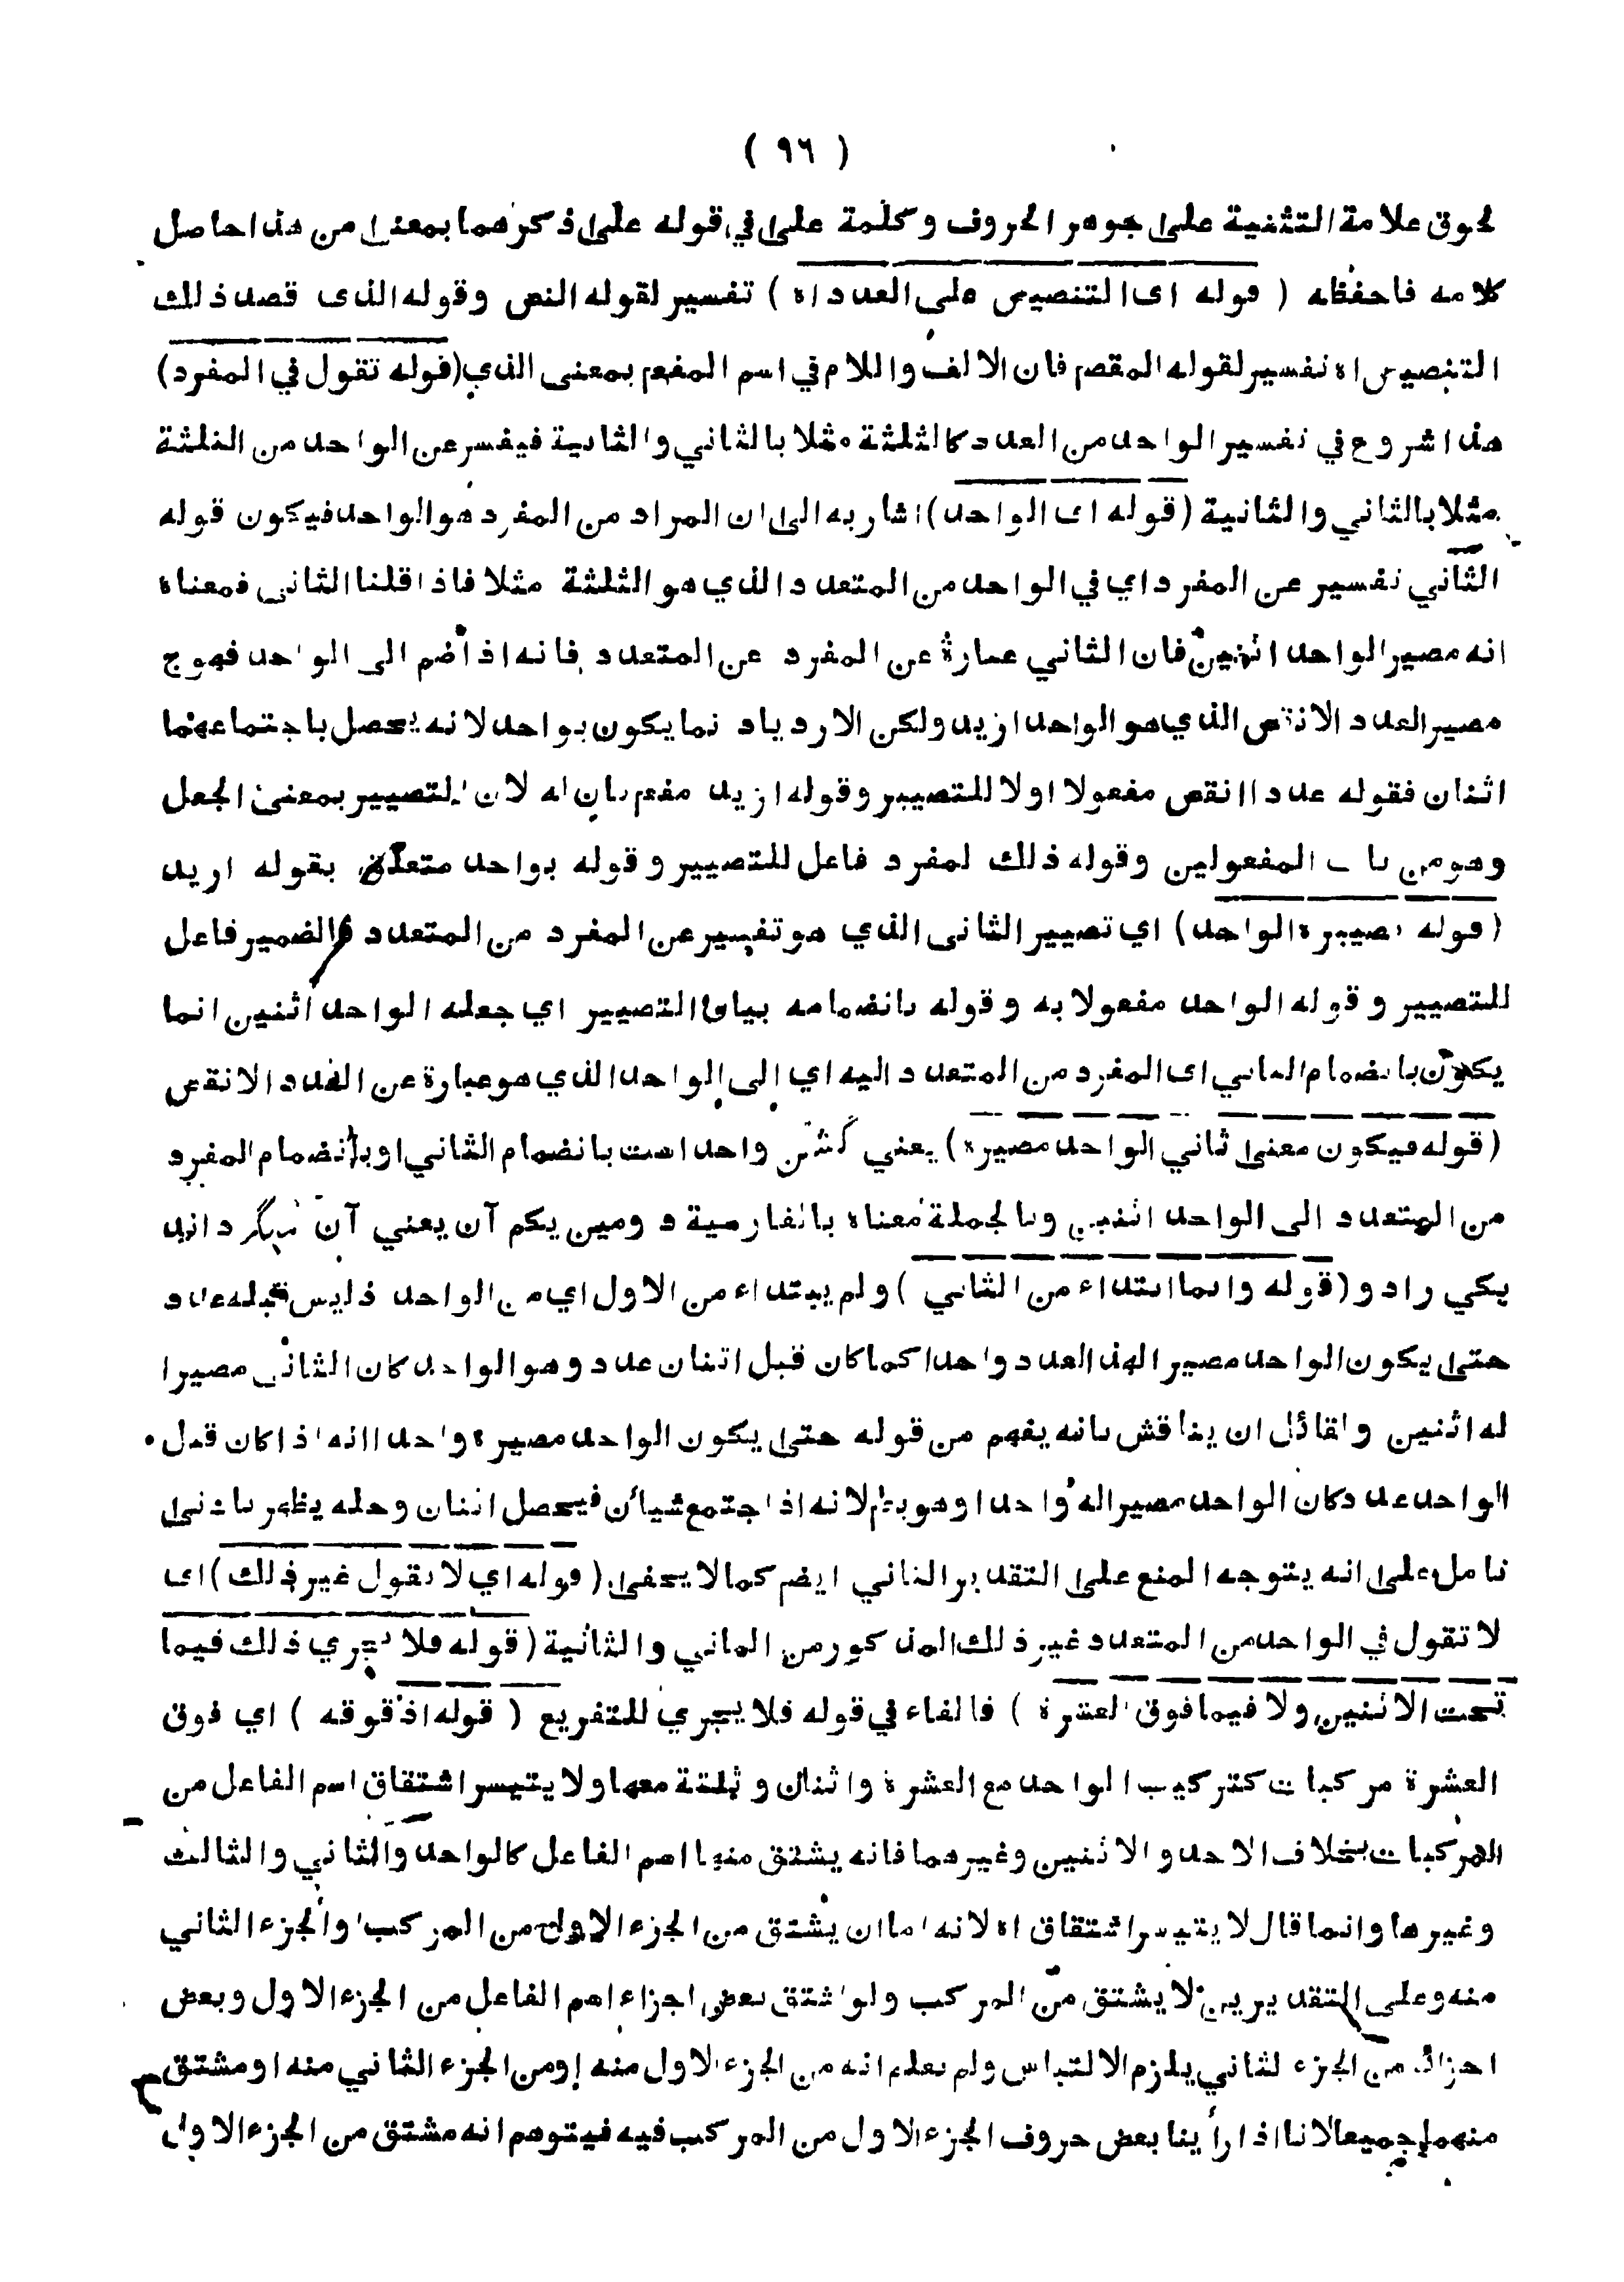 ( ٩٦ )
لحوق علامة التثنية على جوهر الحروف وكلمة على في قوله على ذكرهما بمعنى من هذا حاصل
كلامه فاحفظه ( قوله اى التنصيص على العدد اه ) تفسير لقوله النص وقوله الذى قصد ذلك
التنصيص اه تفسير لقوله المقصم فان الالف واللام في اسم المفعم بمعنى الذي (قوله تقول في المفرد)
هذا شروع في تفسير الواحد من العدد كالثلثة مثلا بالثاني والثانية فيفسر عن الواحد من الثلثة
مثلا بالثاني والثانية (قوله اى الواحد) اشار به الى ان المراد من المفرد هو الواحد فيكون قوله
الثاني تفسير عن المفرد اي في الواحد من المتعدد الذي هو الثلثة مثلا فاذا قلنا الثانى فمعناه
انه مصير الواحد اثنين فان الثاني عبارة عن المفرد عن المتعدد فانه اذا ضم الى الواحد فهو ح
مصير العدد الانقص الذي هو الواحد ازيد ولكن الازدياد انما يكون بواحد لانه يحصل باجتماعهما
اثنان فقوله عددا انقص مفعولا اولا للتصيير وقوله ازيد مفعم ثان له لان التصيير بمعنى الجعل
وهو من باب المفعولين وقوله ذلك لمفرد فاعل للتصيير وقوله بواحد متعلق بقوله ازيد
(قوله تصييره الواحد) اي تصيير الثانى الذي هو تفسير عن المفرد من المتعدد فالضمير فاعل
للتصيير وقوله الواحد مفعولا به وقوله بانضمامه بيان التصيير اي جعله الواحد اثنين انما
يكون بانضمام الثاني اى المفرد من المتعدد اليه اي الى الواحد الذي هو عبارة عن العدد الانقص
(قوله فيكون معنى ثاني الواحد مصيره) يعني كشتن واحد است بانضمام الثاني او بانضمام المفرد
من المتعدد الى الواحد اثنين وبالجملة معناه بالفارسية دومين يكم آن يعني آن ميگرداند
يكي را دو (قوله وانما ابتداء من الثاني ) ولم يبتداء من الاول اي من الواحد ذليس قبله عدد
حتى يكون الواحد مصير الهذ العدد واحدا كما كان قبل اثنان عدد وهو الواحد كان الثانى مصيرا
له اثنين ولقائل ان يناقش بانه يفهم من قوله حتى يكون الواحد مصيره واحدا انه اذا كان قبل
الواحد عدد كان الواحد مصيرا له واحدا وهو بطم لانه اذا اجتمع شيأن فيحصل اثنان وحله يظهر بادنى
تامل على انه يتوجه المنع على التقدير الثاني ايضم كما لا يخفى (قوله اي لا تقول غير ذلك) اى
لا تقول في الواحد من المتعدد غير ذلك المذكور من الثاني والثانية (قوله فلا يجري ذلك فيما
تحت الاثنين ولا فيما فوق العشرة ) فالفاء في قوله فلا يجري للتفريع ( قوله اذ فوقه ) اي فوق
العشرة مركبات كتركيب الواحد مع العشرة واثنان وثلثة معها ولا يتيسر اشتقاق اسم الفاعل من
المركبات بخلاف الاحد والاثنين وغيرهما فانه يشتق منها اسم الفاعل كالواحد والثاني والثالث
وغيرها وانما قال لا يتيسر اشتقاق اه لانه اما ان يشتق من الجزء الاول من المركب او الجزء الثاني
منه وعلى التقديرين لا يشتق من المركب ولو اشتق بعض اجزاء اسم الفاعل من الجزء الاول وبعض
اجزائه من الجزء لثاني يلزم الالتباس ولم يعلم انه من الجزء الاول منه او من الجزء الثاني منه او مشتق
منهما جميعا لانا اذا رأينا بعض حروف الجزء الاول من المركب فيه فيتوهم انه مشتق من الجزء الاول